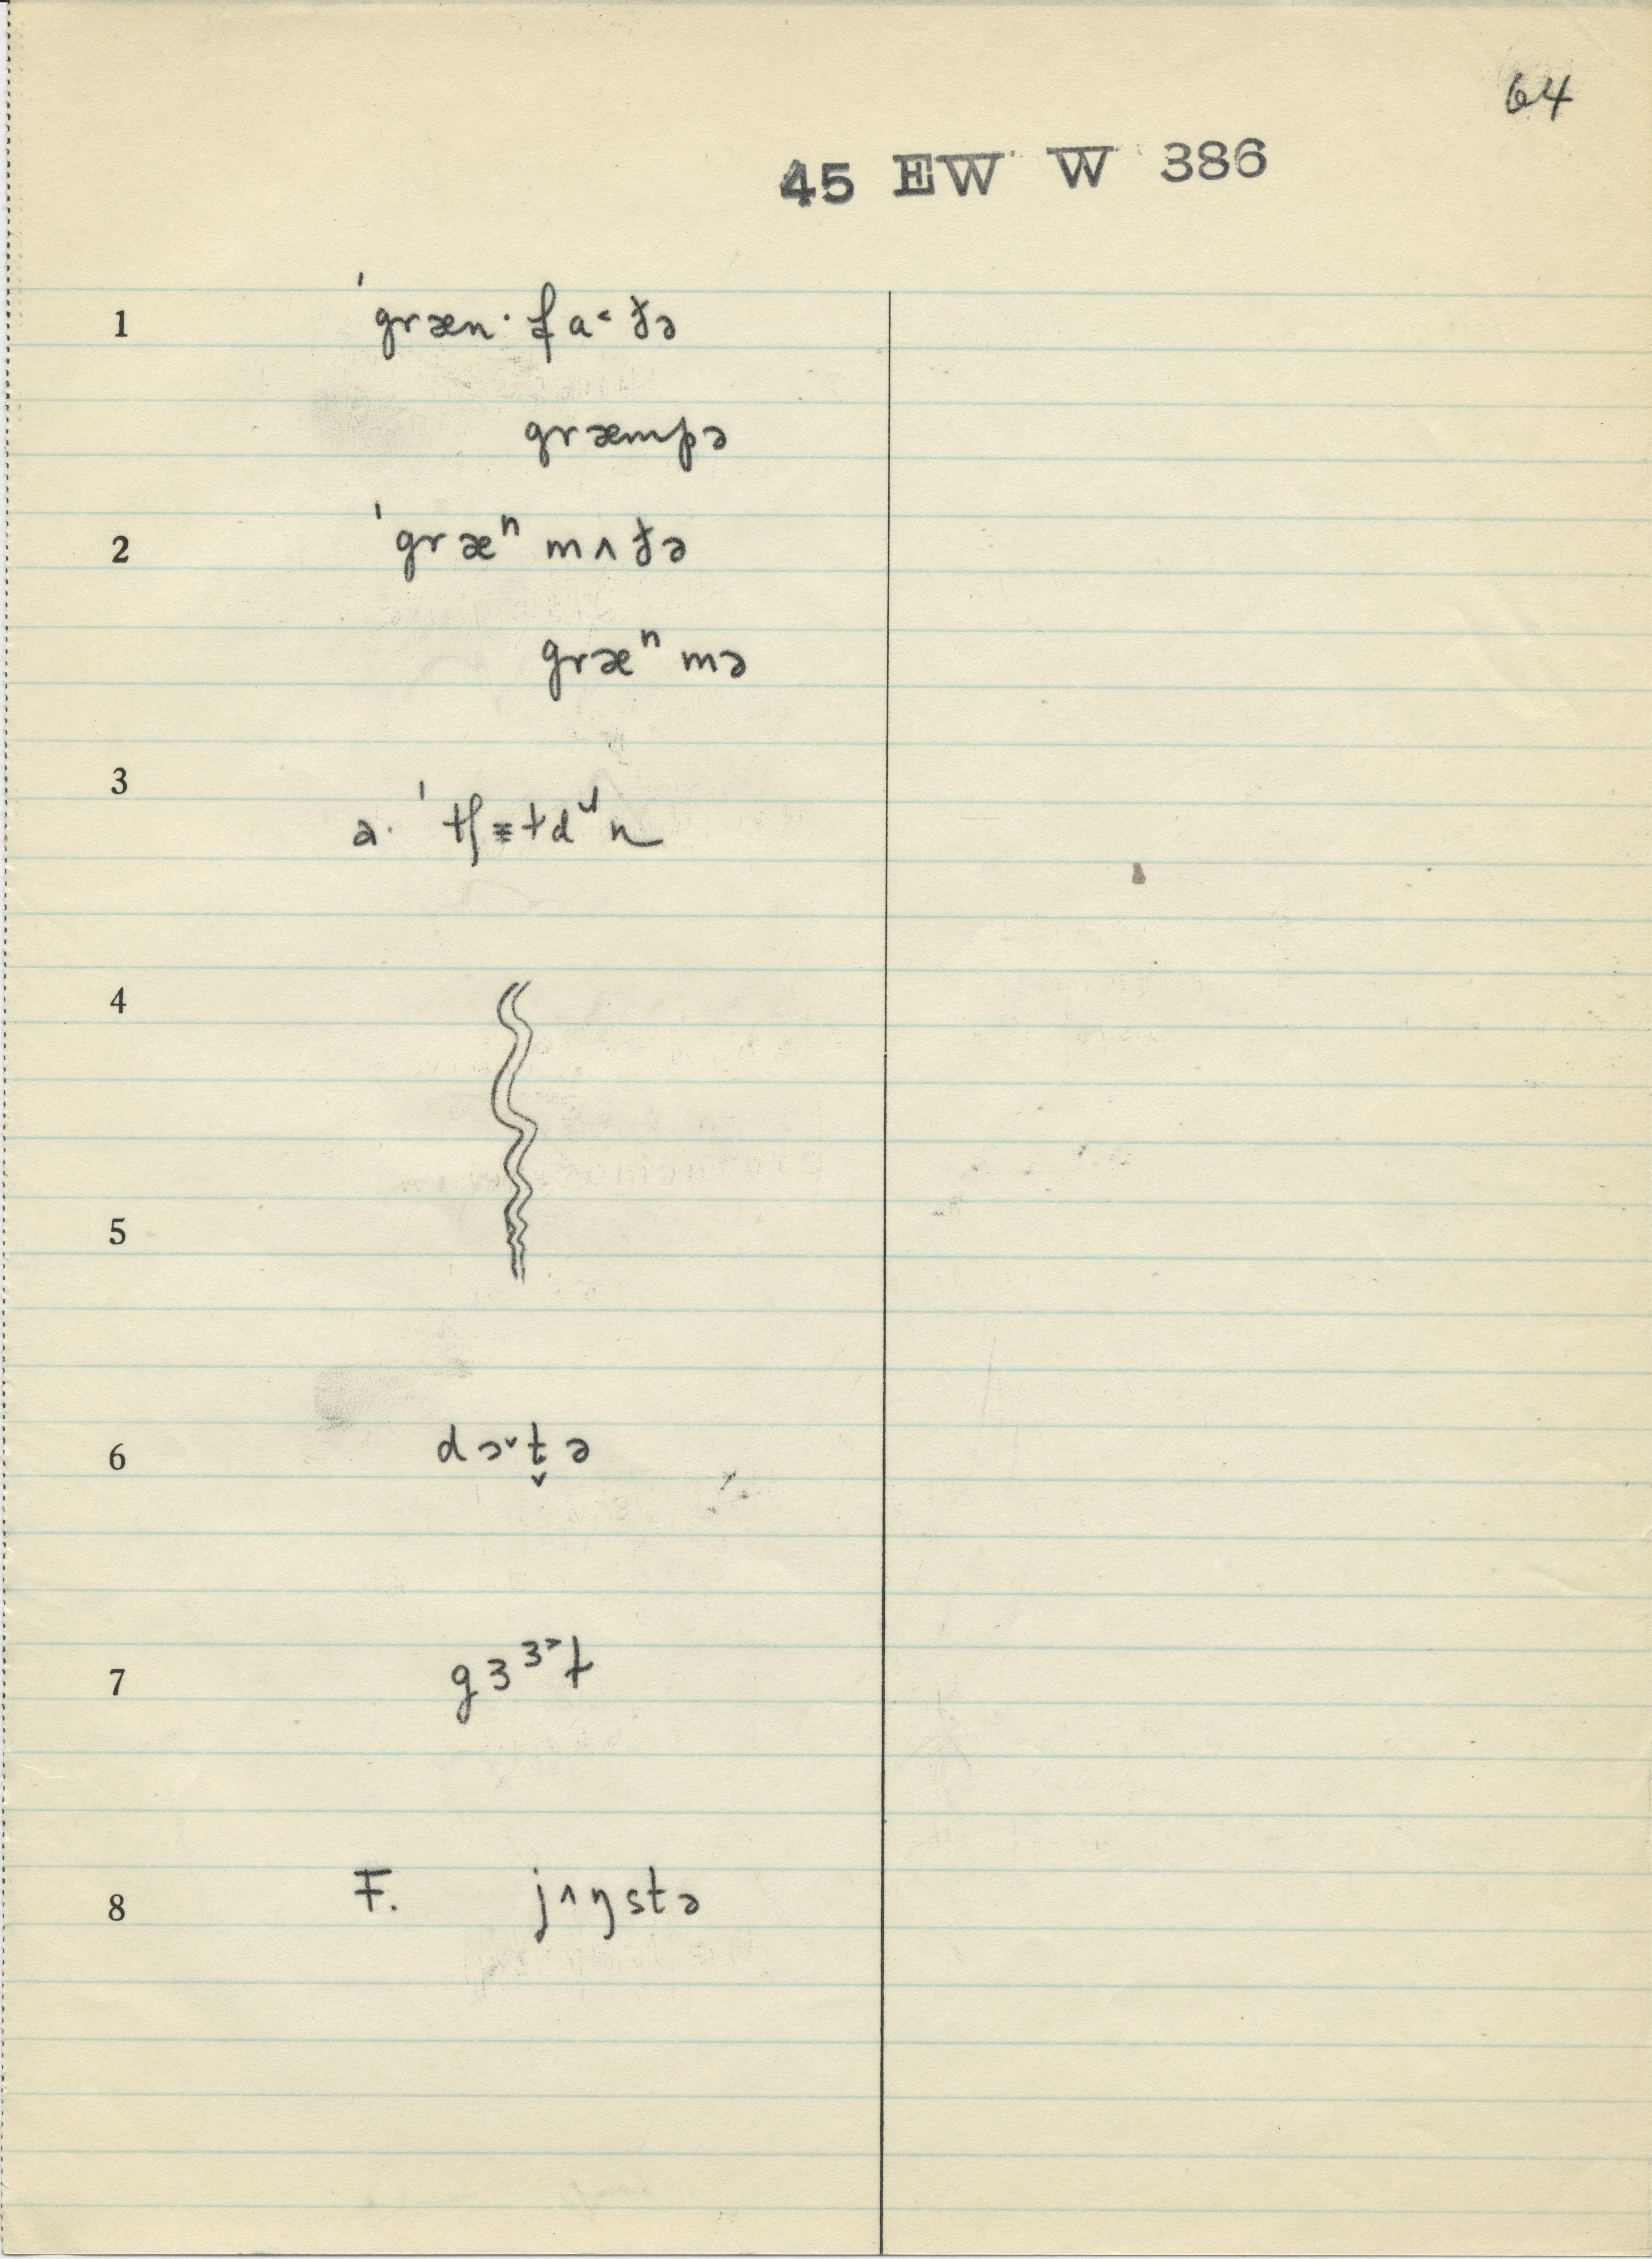 64
45 EW W 386
1 ˈgræn· fa˂ðə
græmpə
2 ˈgræⁿ mʌðə
græⁿ mə
3
4
5
6 dɔ˅t̬ə
7 gɜᶟ˃ɫ
8 F. jʌŋstə